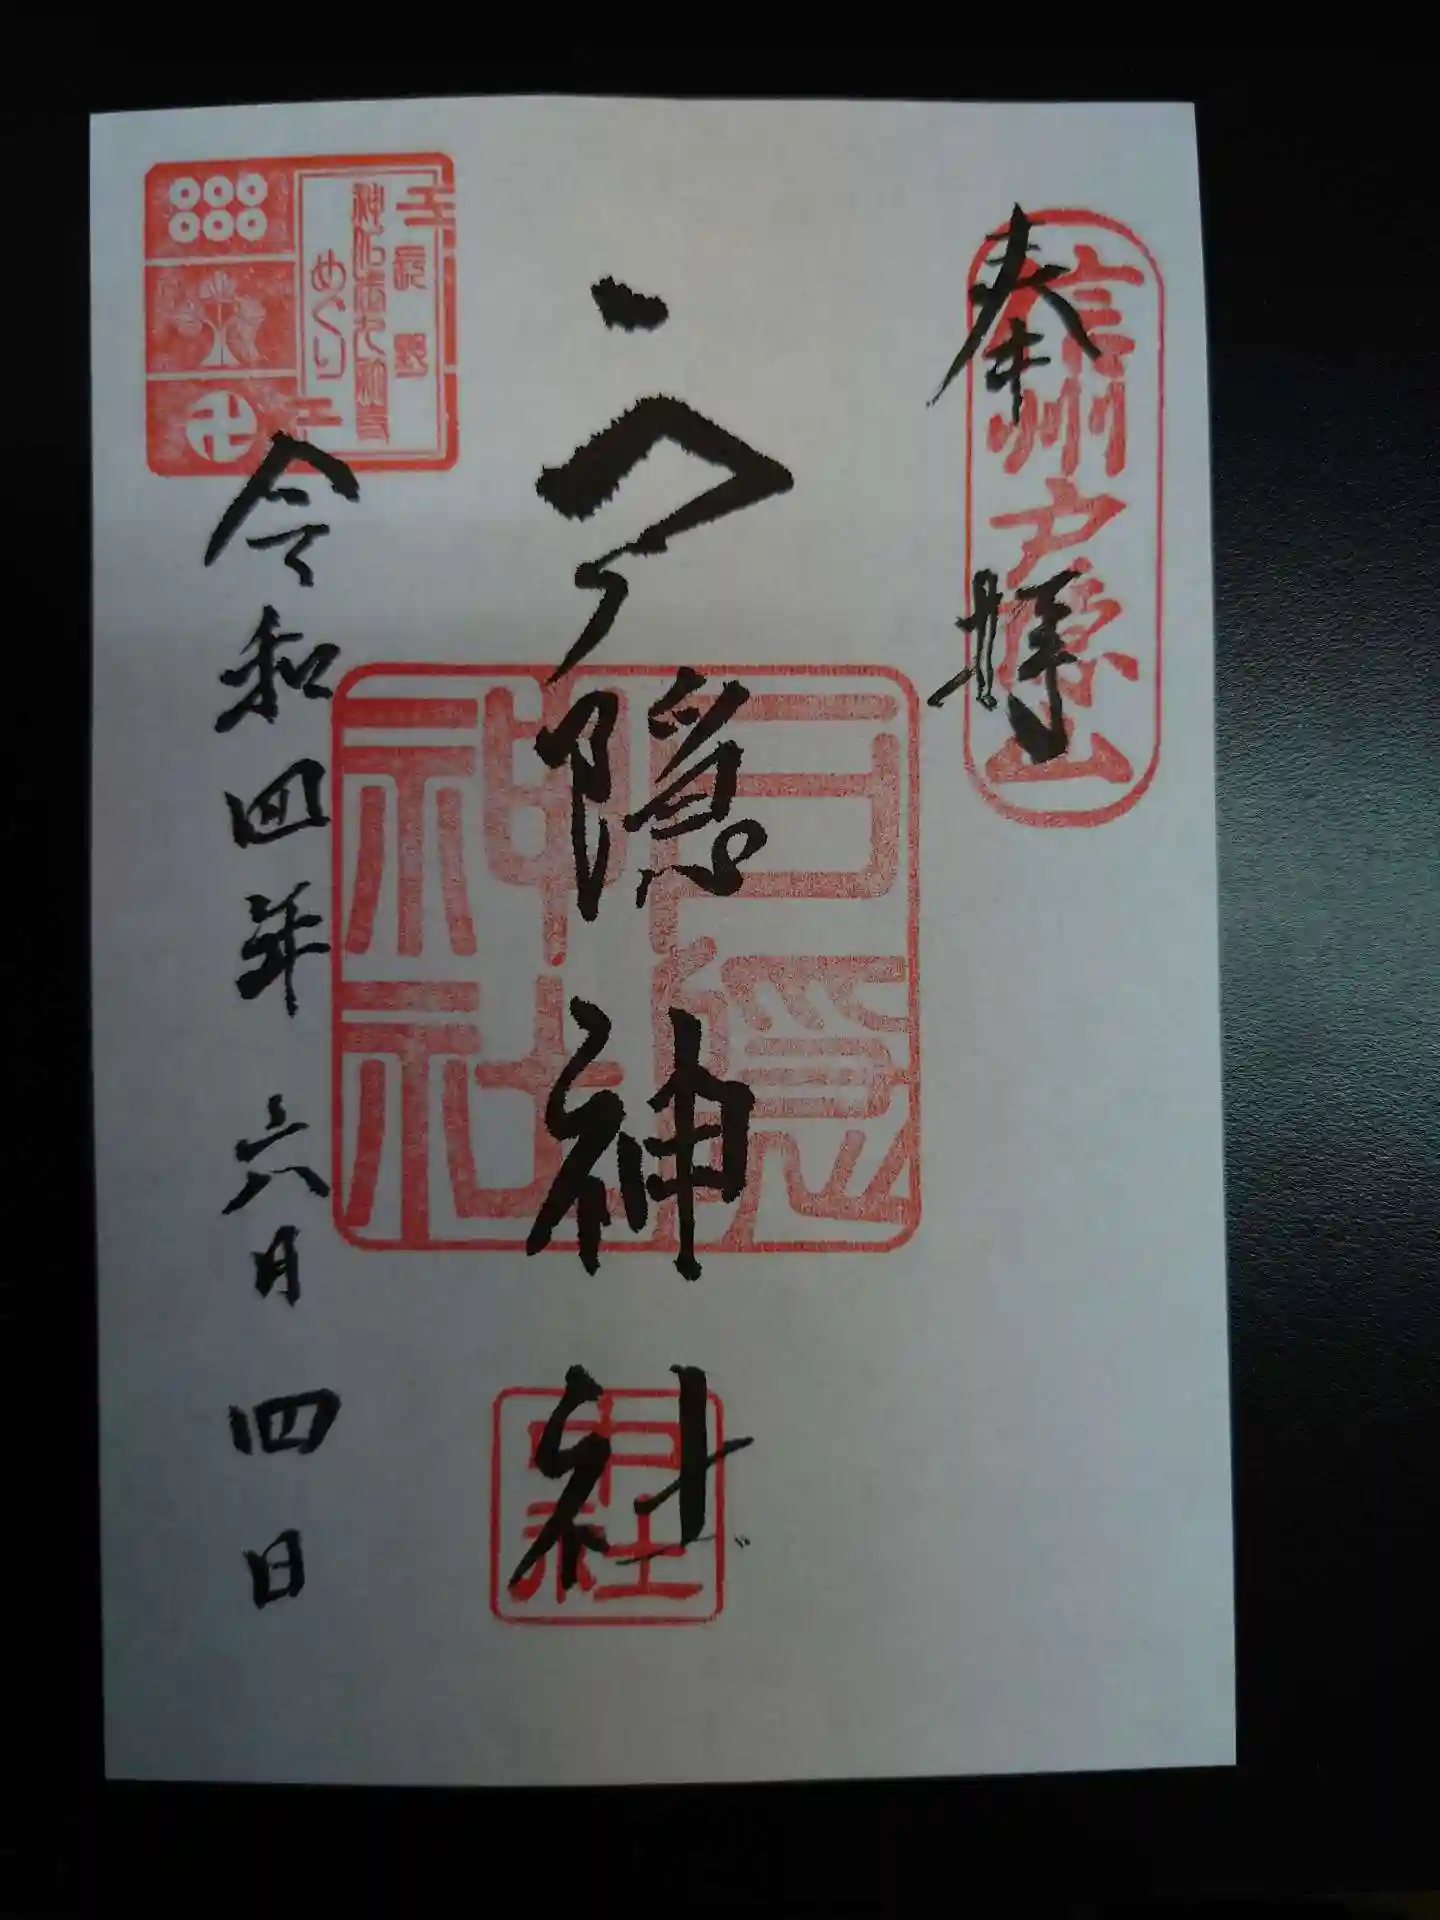 奉拝
信州戸隠山
戸隠神社
戸隠
神社
中社
令和四年六月四日
長野
めぐり